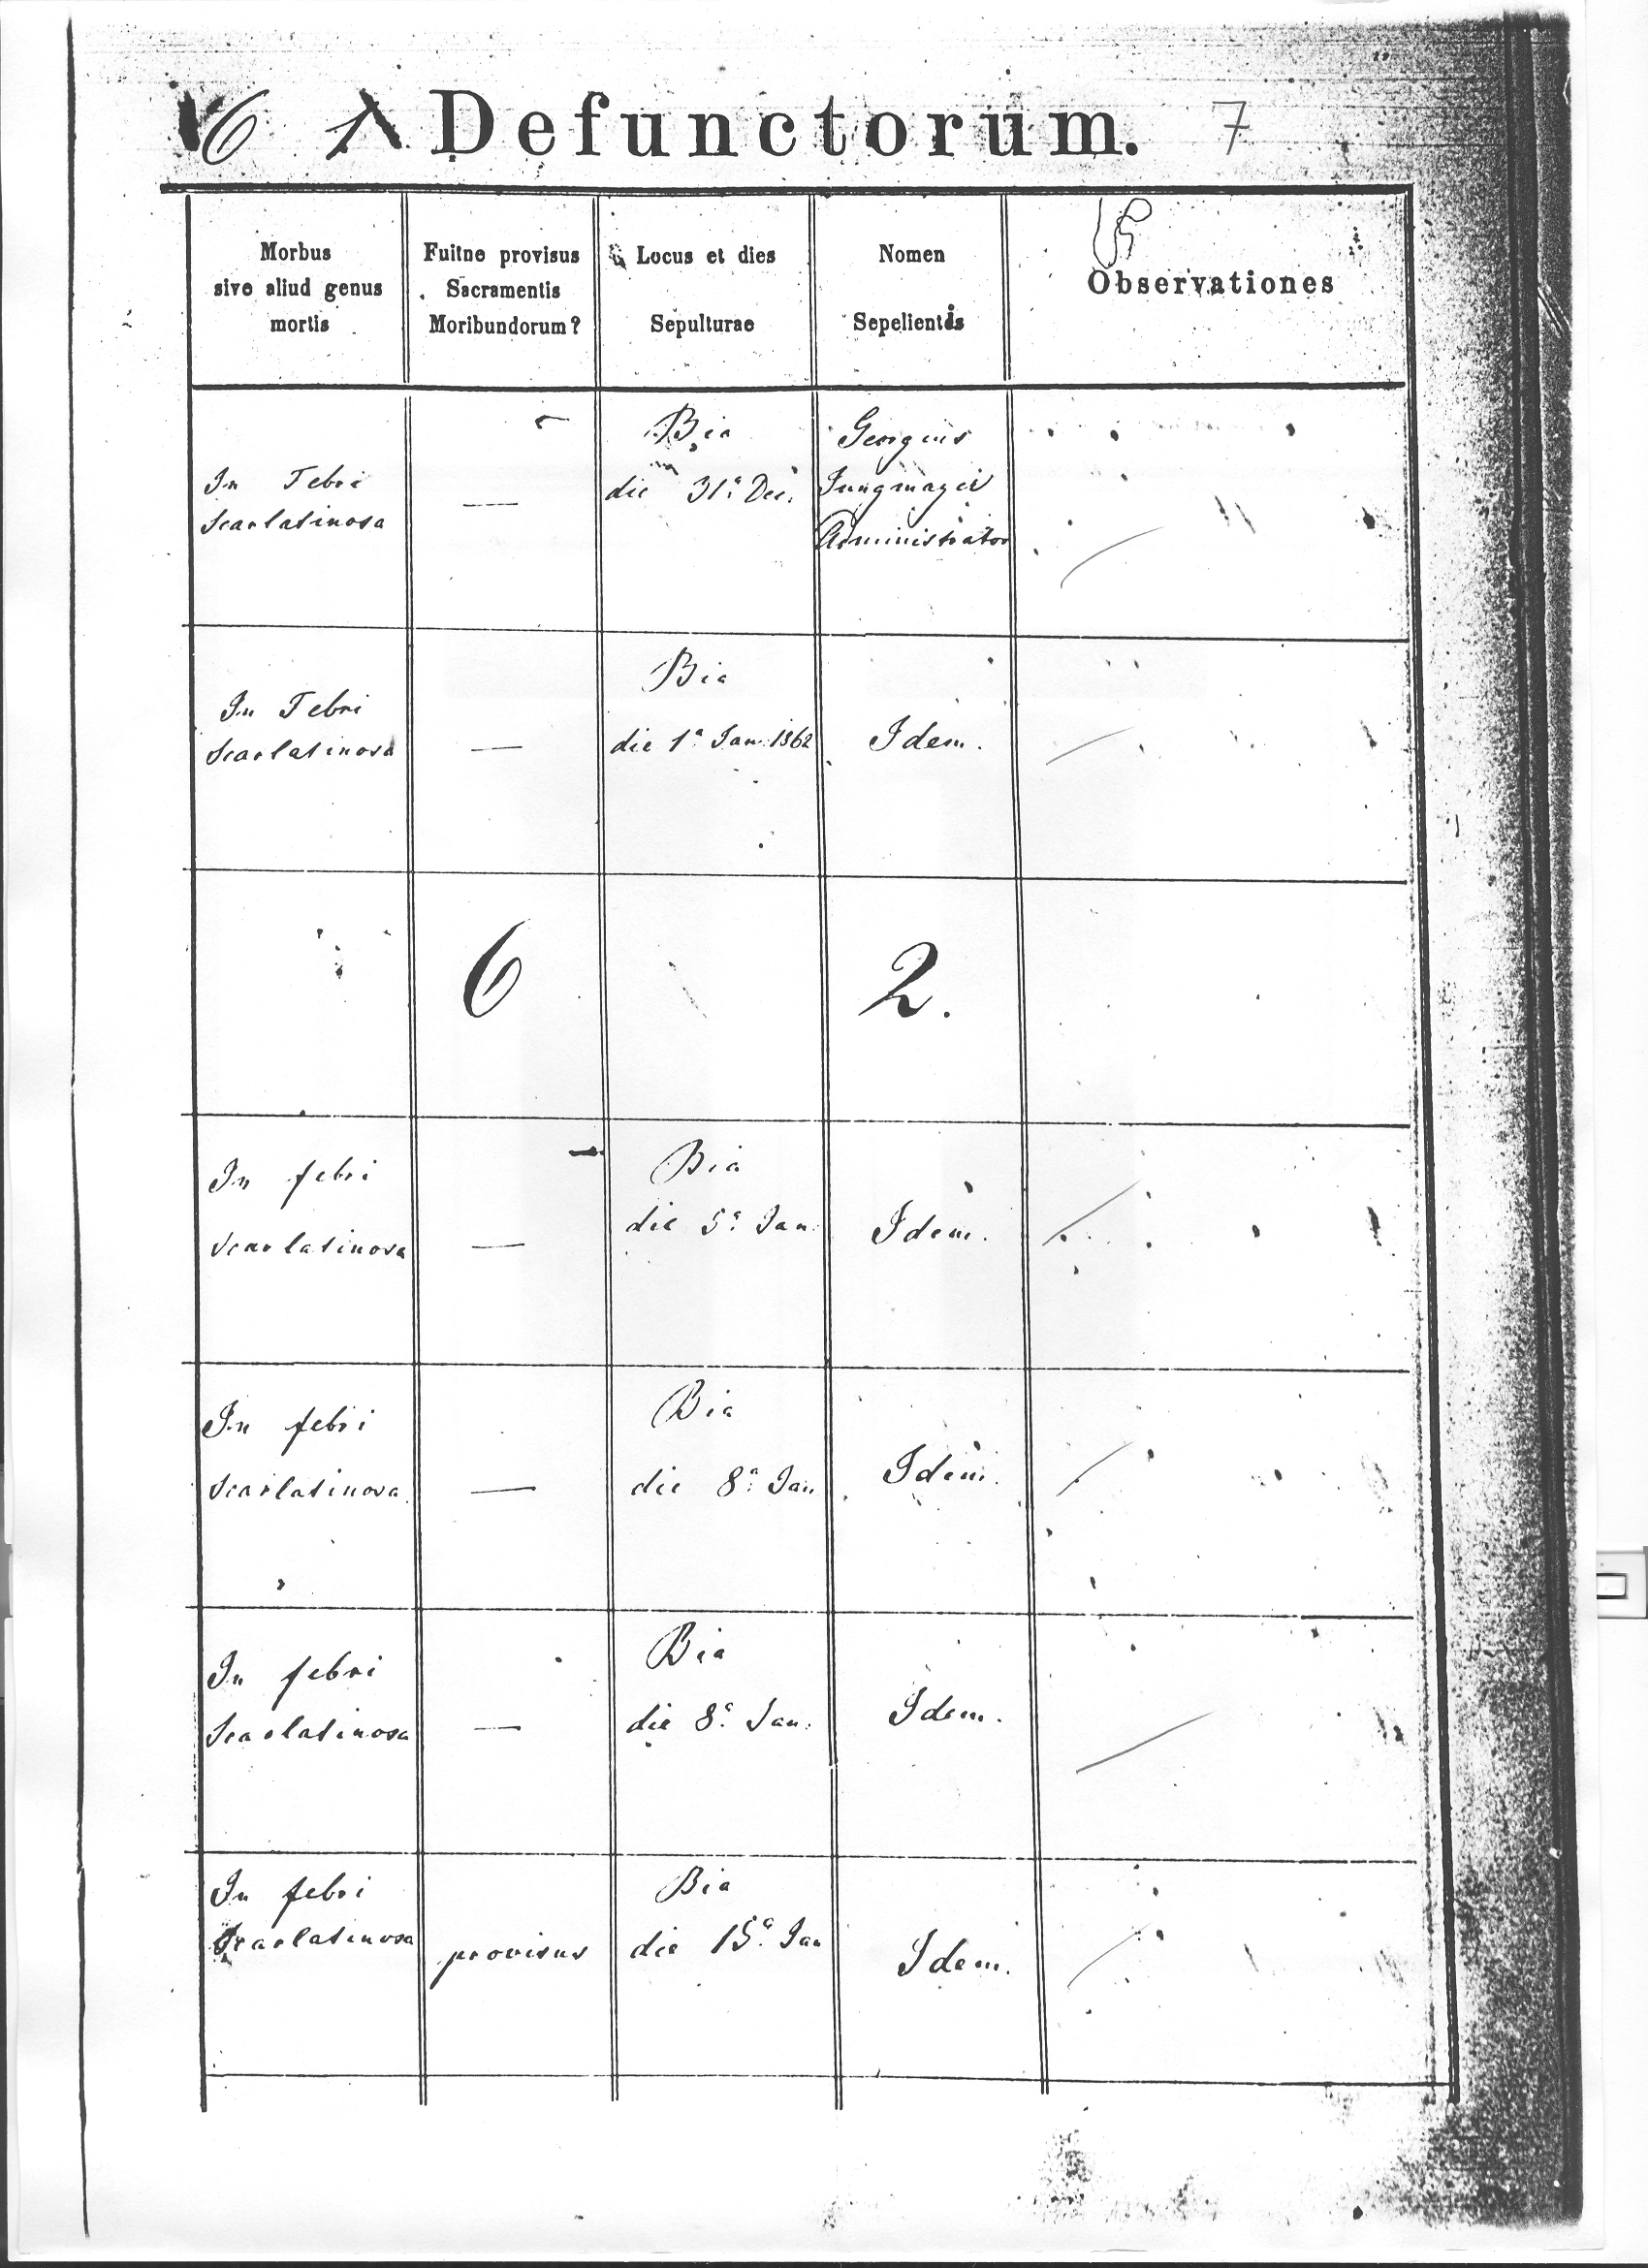 6 1 Defunctorum. 7
Morbus
sive aliud genus
mortis
Fuitne provisus
Sacramentis
Moribundorum?
Locus et dies
Sepulturae
Nomen
Sepelientis
Observationes
In Febri
Scarlatinosa
—
Bia
die 31ª Dec.
Georgius
Jungmayer
Administrator
In Febri
Scarlatinosa
—
Bia
die 1ª Jan. 1862
Idem.
6 2.
In febri
scarlatinosa
—
Bia
die 5ª Jan
Idem.
In febri
scarlatinosa
—
Bia
die 8ª Jan
Idem.
In febri
Scarlatinosa
—
Bia
die 8ª Jan.
Idem.
In febri
Scarlatinosa
provisus
Bia
die 15ª Jan
Idem.